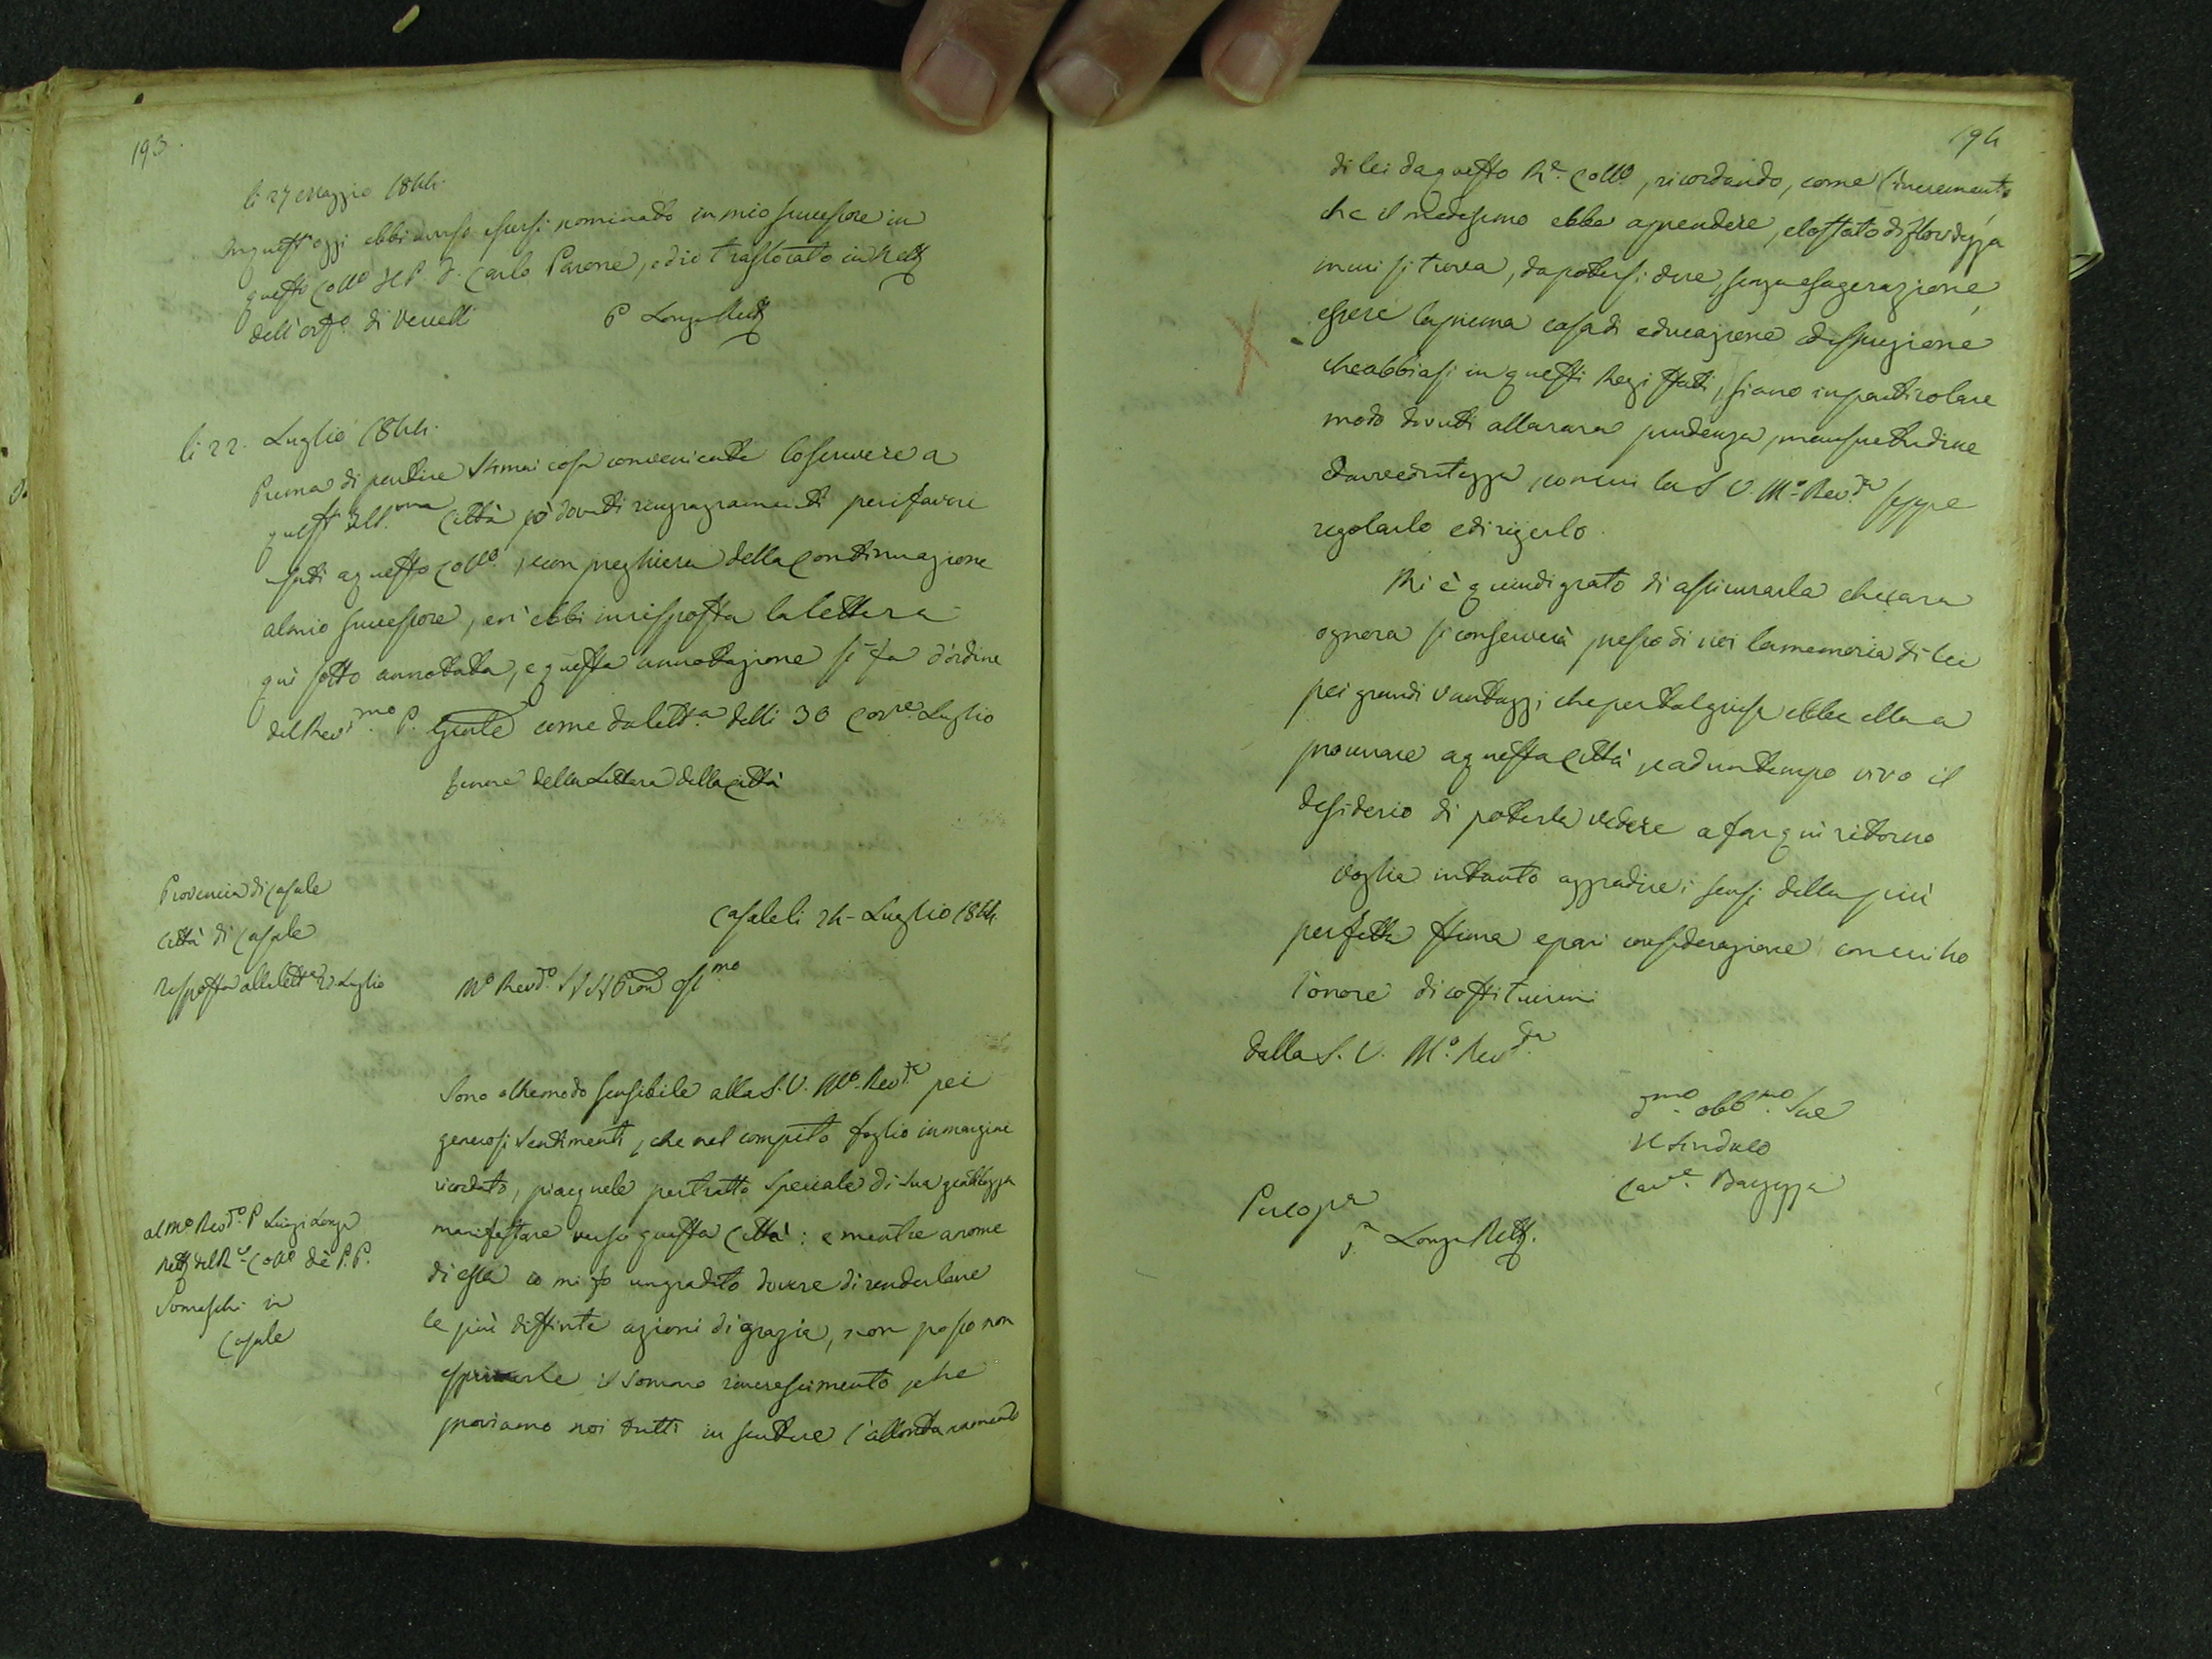 193.
li 27 Maggio 1844.
In quest'oggi ebbi avviso essersi nominado in mio successore in
questo Collo. il P. D. Carlo Parone, ed io traslocato in Rett
dell'orfo. di Vercelli
P Longa Rett
li 22. Luglio 1844.
Prima di partire stimai cosa conveniente lo scrivere a
quest' Ill.ma Città pei dovuti ringraziamenti pei favori
usati a questo Collo., con preghiera della continuazione
al mio successore, en' ebbi in risposta la lettera
qui sotto annotata, e questa annotazione si fa d'ordine
del Rev.mo P. Grale come da lett.a delli 30 corre. Luglio
Tenore della Lettera della Città
Provincia di Casale
Città di Casale
Risposta alla lett.a 22 Luglio
Casale li 24 - Luglio 1844.
Mo Revdo. Sig. Pron Ossmo
Sono oltremodo sensibile alla S. V. Mo. Rev.da pei
generosi sentimenti, che nel compito foglio in margine
ricordato, piacquele per tratto speciale di sua gentilezza
manifestare verso questa Città: e mentre a nome
di essa io mi fo un gradito dovere di renderlene
le più distinte azioni di grazia, non posso non
esprimerle il sommo rincrescimento, che
proviamo noi tutti in sentire l'allontanamento
al Mo Revdo. P Luigi Longa
Rett del R. Collo de' P.P.
Somaschi in
Casale
194
di lei da questo Re. Collo., ricordando, come l'incremento
che il medesimo ebbe a prendere, e lo stato di floridezza
in cui si trova, da potersi dire, senza esagerazione,
essere la prima casa di educazione ed istruzione
che abbiasi in questi Regi Stati, siano in particolare
modo dovuti alla rara prudenza, mansuetudine
ed avvedutezza, con cui la S V Mo. Rev.da seppe
regolarlo e dirigerlo.
Mi è quindi grato di assicurarla che cara
ognora si conserverà presso di noi la memoria di lei
pei grandi vantaggi, che per tal guisa ebbe ella a
procurare a questa Città, e ad un tempo vivo il
desiderio di poterla vedere a far qui ritorno
Voglia intanto aggradire i sensi della più
perfetta stima e pari considerazione con cui ho
l'onore di costituirmi
Dalla S. V. Mo. Revda.
Dmo. obbmo. Sre
Il Sindaco
Cave.
Per copia
P. Longa Rett.